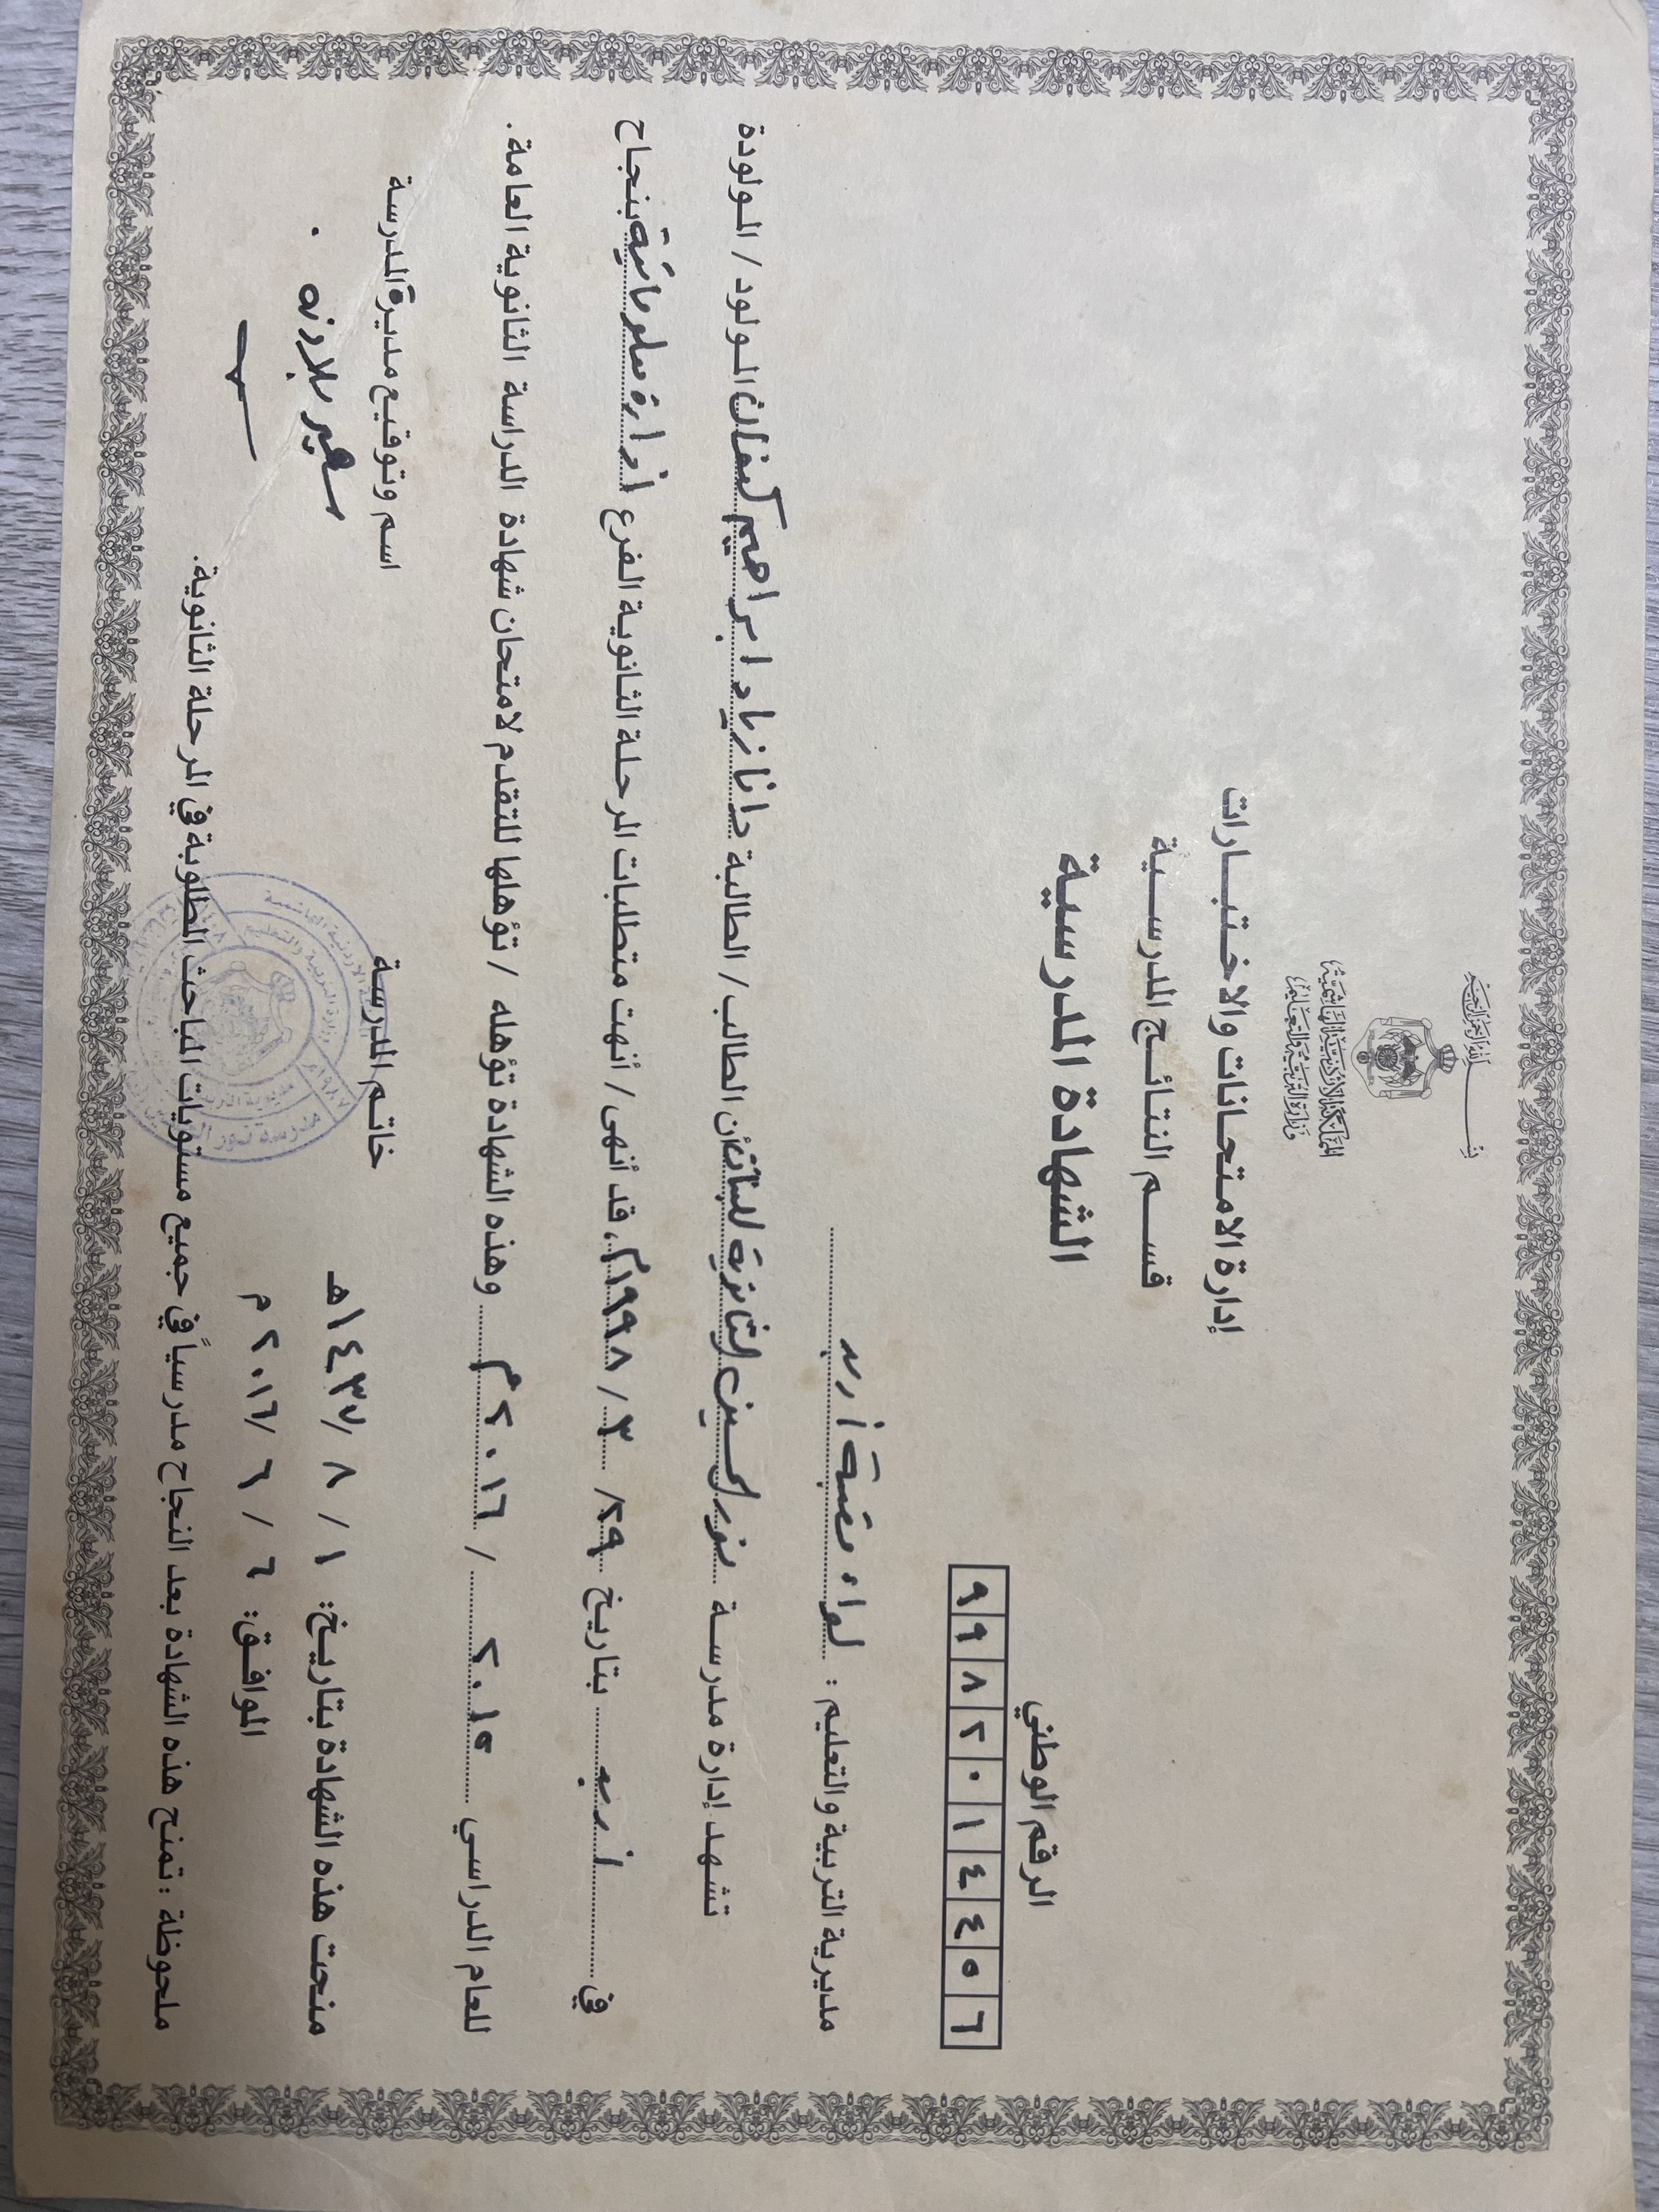 بسم الله الرحمن الرحيم
المملكة الأردنية الهاشمية
وزارة التربية والتعليم
إدارة الامتحانات والاختبارات
قسم النتائج المدرسية
الشهادة المدرسية
الرقم الوطني
٩٩٨٢٠١٤٤٥٦
مديرية التربية والتعليم : لواء قصبة أربد
تشهد إدارة مدرسة نور الحسين الثانوية للبنات أن الطالب / الطالبة دانا زياد ابراهيم كنعان المولود / المولودة
في أربد بتاريخ ٢٩/ ٣ / ١٩٩٨م، قد أنهى / أنهت متطلبات المرحلة الثانوية الفرع أدارة معلوماتية بنجاح
للعام الدراسي ٢٠١٥ / ٢٠١٦ م وهذه الشهادة تؤهله / تؤهلها للتقدم لامتحان شهادة الدراسة الثانوية العامة .
منحت هذه الشهادة بتاريخ: ١ / ٨ /١٤٣٧هـ
الموافق: ٦ / ٦ /٢٠١٦ م
خاتم المدرسة
اسم وتوقيع مديرة المدرسة
سهير
ملحوظة : تمنح هذه الشهادة بعد النجاح مدرسياً في جميع مستويات المباحث المطلوبة في المرحلة الثانوية.